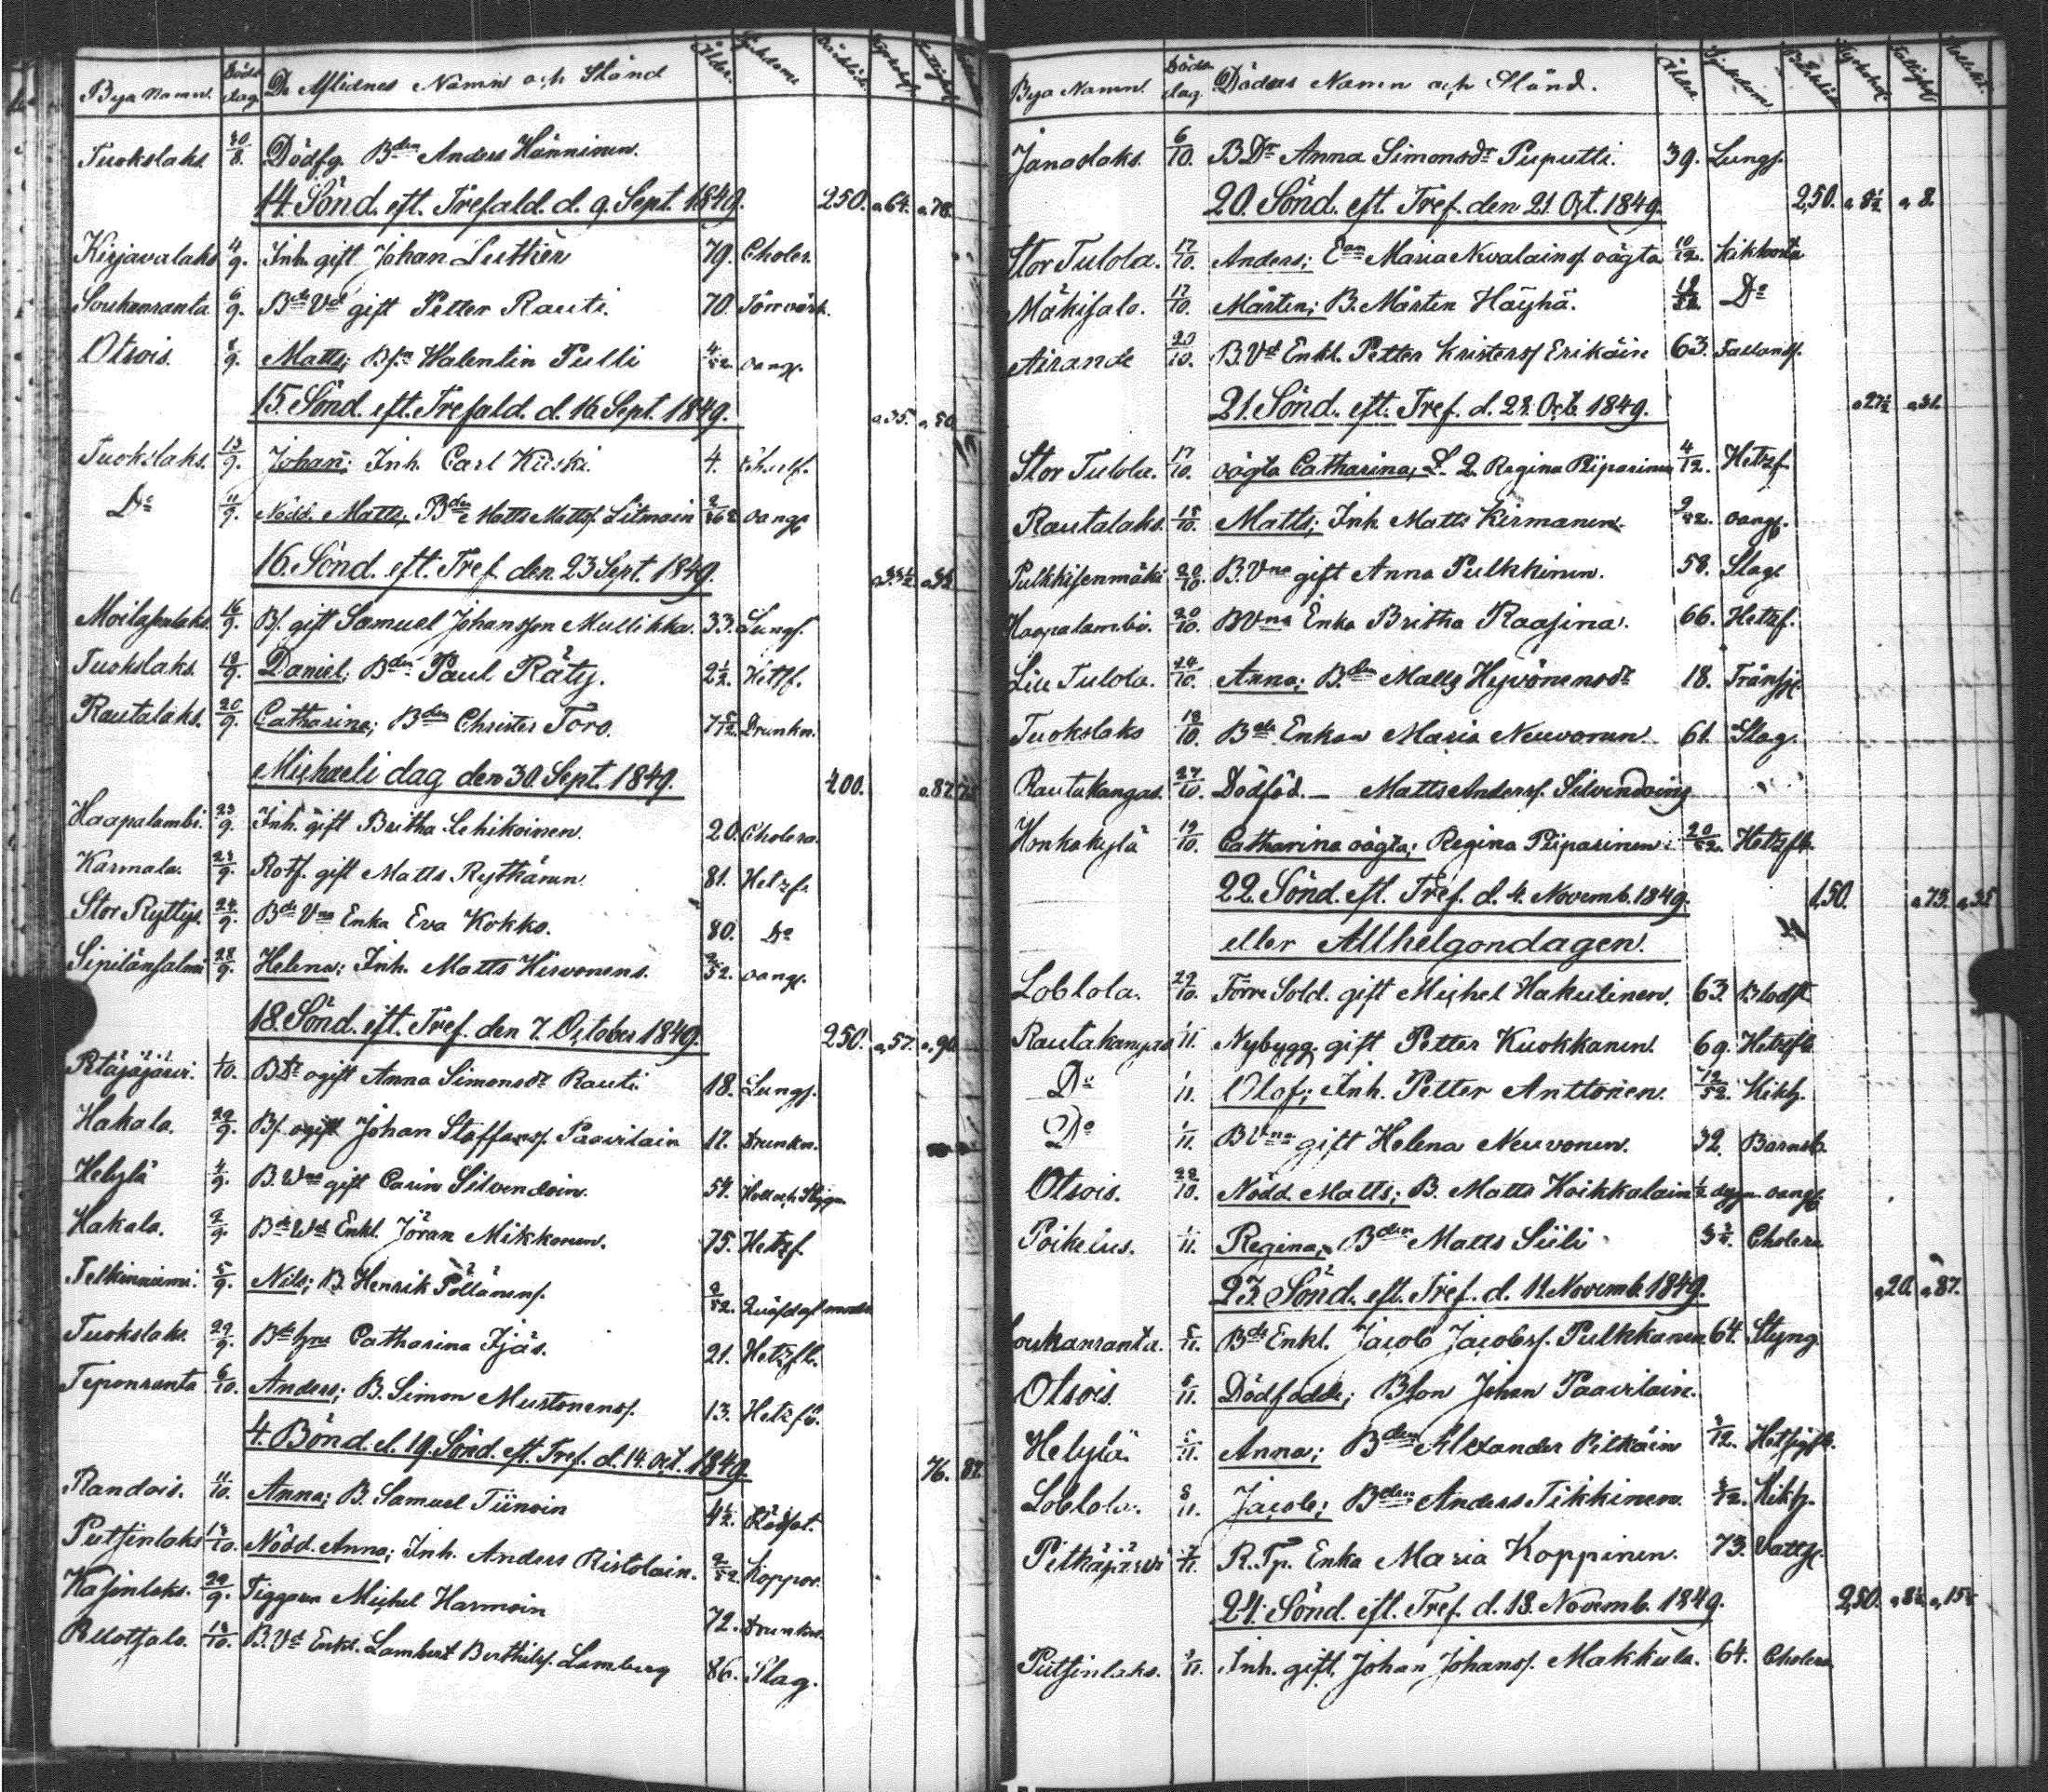 Bya Namn. Döds dag. De Aflidnes Namn och Stånd Ålder. Sjukdom
Tuokslaks. 30/8. Dödfg. Bden Anders Hänninen.
14. Sönd. eft. Trefald. d. 9. Sept. 1849. 250. 64. 78.
Kirjavalaks 4/9. Inh. gift Johan Leethén 79. Choler.
Sorkanranta 6/9. Bde Vd gift Petter Rauti. 70. Törrvärk.
Otsois. 8/9. Matts; Bsn Walentin Pulli 4/52 oangf.
15. Sönd. eft. Trefald. d. 16. Sept. 1849. 35. 50.
Tuokslaks. 13/9. Johan; Inh. Carl Kiiski. 4.
Do 11/9. Nödd. Matts; Bden Matts Mattsf. Litmain oangf
16. Sönd. eft. Tref. den 23 Sept. 1849.
16/9. Bf. gift Samuel Johansson Mullikka. 33. Lungf.
Tuokslaks. 19/9. Daniel; Bden Paul Räty. 2½. Hettf.
Rautalaks. 20/9. Catharina; Bden Christer Toro. 7 5/12. Drunkn.
Michaeli dag den 30. Sept. 1849. 400. 87.
Haapalambi. 23/9. Inh. gift Britha Lehikoinen. 20. Cholera.
Karmala. 24/9. Rotf. gift Matts Rythänen. 81. Hetzf.
Stor Ryttys. 24/9. Bde Vna Enka Eva Kokko. 80. Do
Sipilänsalmi 28/9. Helena; Inh. Matts Hirvonens. 2/52. oangf.
18. Sönd. eft. Tref. den 7. October 1849. 250. 57. 90.
Ptäjäjärvi. 1/10. BDr ogift Anna Simonsdr Rauti 18. Lungf.
Hakala. 29/9. Bf. ogift Johan Staffansf. Paavilain 17. Drunkn.
Helylä 4/9. B. Wna gift Carin Silvendoin. 54. Håll och Styng
Hakala. 2/9. Bde Wd Enkl. Jöran Mikkonen. 75. Hetzf.
Telkinniemi. 5/9. Nils; B. Henrik Pöllänens. 2/52.
Tuokslaks. 29/9. Bde hna Catharina Ijäs. 21. Hetzfb.
Teponranta 6/10. Anders; B. Simon Mustonens. 13. Hetzfb.
4. Bönd. el. 19. Sönd. eft. Tref. d. 14. Oct. 1849. 76. 87.
Randois. 11/10. Anna; B. Samuel Tiinoin 4½. Rödsot.
Putsinlaks 13/10. Nödd. Anna; Inh. Anders Ristolain. 2/52. Koppor.
Kasinlaks. 29/9. Tiggaren Michel Harmoin 72. Drunkn.
Rllotsalo. B. Vd Enkl. Lambert Berthilsf. Lamberg 86. Slag.
Bya Namn. Döds dag. Dödas Namn och Stånd. Ålder Sjukdom
Janaslaks. 6/10. BDr Anna Simonsdr Puputti. 39. Lungf.
20. Sönd. eft. Tref. den 21. Oct. 1849. 2,50. 8½ 8.
Stor Tulola. 17/10. Anders; Ean Maria Nevalainsf. oägta 10/12. Kikhosta
Mäkisalo. 17/10. Mårten; B. Mårten Häyhä. Do
Airande 20/10. B. Vd Enkl. Petter Kristersf Erikäin 63. Fallands.
21. Sönd. eft. Tref. d. 28. Octb. 1849. 27½ 31.
Stor Tulola. 17/10. oägta Catharina; L. Q. Regina Piiparinen 4/12. Hetzf
Rautalaks. 18/10. Matts; Inh Matts Kirmanen. 2/52. oangf.
Pulkkisenmäki 20/10. B. Vna gift Anna Pulkkinen. 58. Slag.
Haapalambi. 20/10. BVna Enka Britha Raasina. 66. Hetzf.
Lill Tulola. 24/10. Anna; Bden Matts Hyvönensdr 18. Trånsj.
Tuokslaks 18/10. Bde Enkan Maria Neuvonen. 61. Slag.
Rautakangas. 27/10. Dödföd. — Matts Andersf. Silvendoing
Honkakylä 19/10. Catharina oägta; Regina Piiparinen. 20/52. Hetzfb.
22. Sönd. eft. Tref. d. 4. Novemb. 1849. 1,50. 73. 35
eller Allhelgondagen.
Loblola. 29/10. Förre Sold. gift Michel Hakulinen. 63. Blodst
Rautakangas 1/11. Nybygg. gift Petter Kuokkanen. 69. Hetzfb
Do 1/11. Olof; Inh. Petter Anttonen. 12/52. Kikh.
Do 1/11. BVna gift Helena Neuvonen. 32. Barnsb.
Otsois. 28/10. Nödd. Matts; B. Matts Koikkalain ½ dygn. oangf.
Poikelus. 1/11. Regina; Bden Matts Siili Cholera
23. Sönd. eft. Tref. d. 11. Novemb. 1849. 20. 87.
Sorkanranta. 5/11. Bde Enkl. Jacob Jacobsf. Pulkkanen 64. Styng.
Otsois. 6/11. Dödfödde; BSon Johan Paavilain.
Helylä. 5/11. Anna; Bden Alexander Pitkäin
Loblola. 8/11. Jacob; Bden Anders Tikkinen. Kikh.
Petkäjärvi R. Tp. Enka Maria Koppinen. 73. Vattsf.
24. Sönd. eft. Tref. d. 18. Novemb. 1849. 2,50.
Putsinlaks. Inh. gift. Johan Johansf. Makkula. 64. Cholera